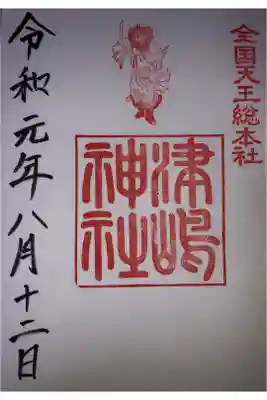 全国天王総本社
津嶋
神社
令和元年八月十二日